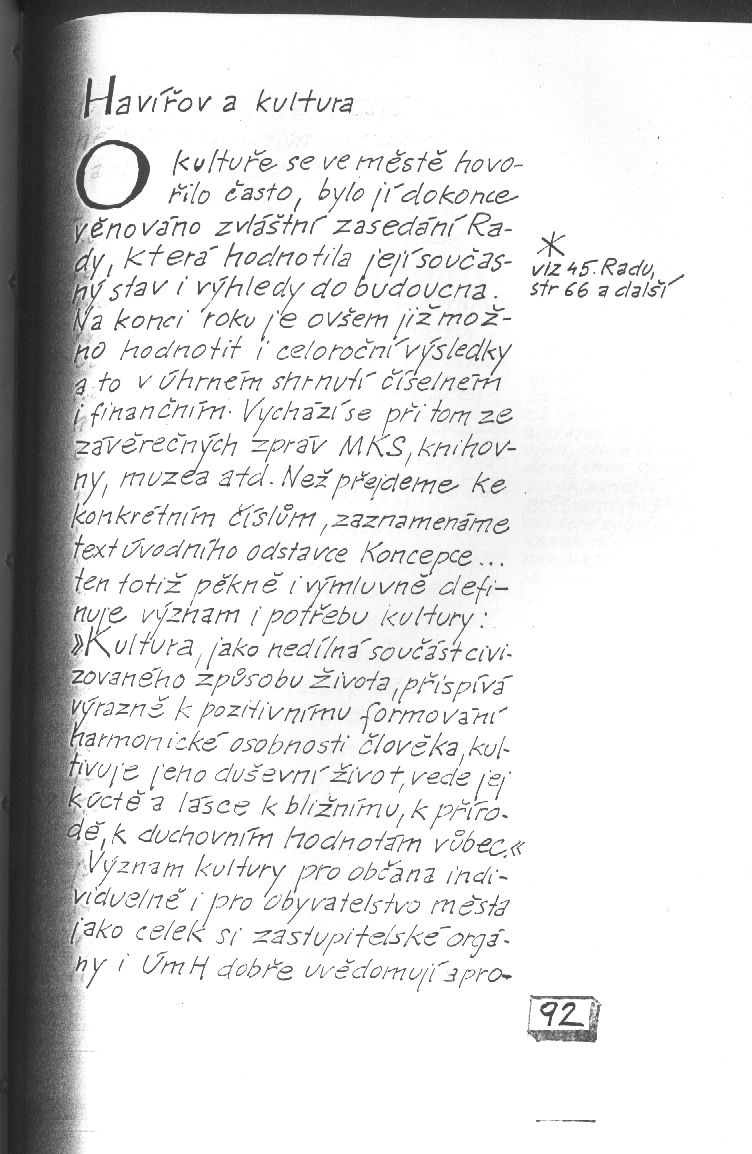 Havířov a kultura
O kultuře se ve městě hovo-
řilo často, bylo jí dokonce
věnováno zvláštní zasedání Ra-
dy, která hodnotila její součas-
ný stav i výhledy do budoucna.
*
viz 45. Radu,
str 66 a další
Na konci roku je ovšem již mož-
no hodnotit i celoroční výsledky
a to v úhrném shrnutí číselném
i finančním. Vychází se při tom ze
závěrečných zpráv MKS, knihov-
ny, muzea atd. Než přejdeme ke
konkrétním číslům, zaznamenáme
text úvodního odstavce Koncepce...
ten totiž pěkně i výmluvně defi-
nuje význam i potřebu kultury:
»Kultura, jako nedílná součást civi-
zovaného způsobu života, přispívá
výrazně k pozitivnímu formování
harmonické osobnosti člověka, kul-
tivuje jeho duševní život, vede jej
k úctě a lásce k bližnímu, k příro-
dě, k duchovním hodnotám vůbec.«
Význam kultury pro občana indi-
viduelně i pro obyvatelstvo města
jako celek si zastupitelské orgá-
ny i ÚmH dobře uvědomují a pro-
92